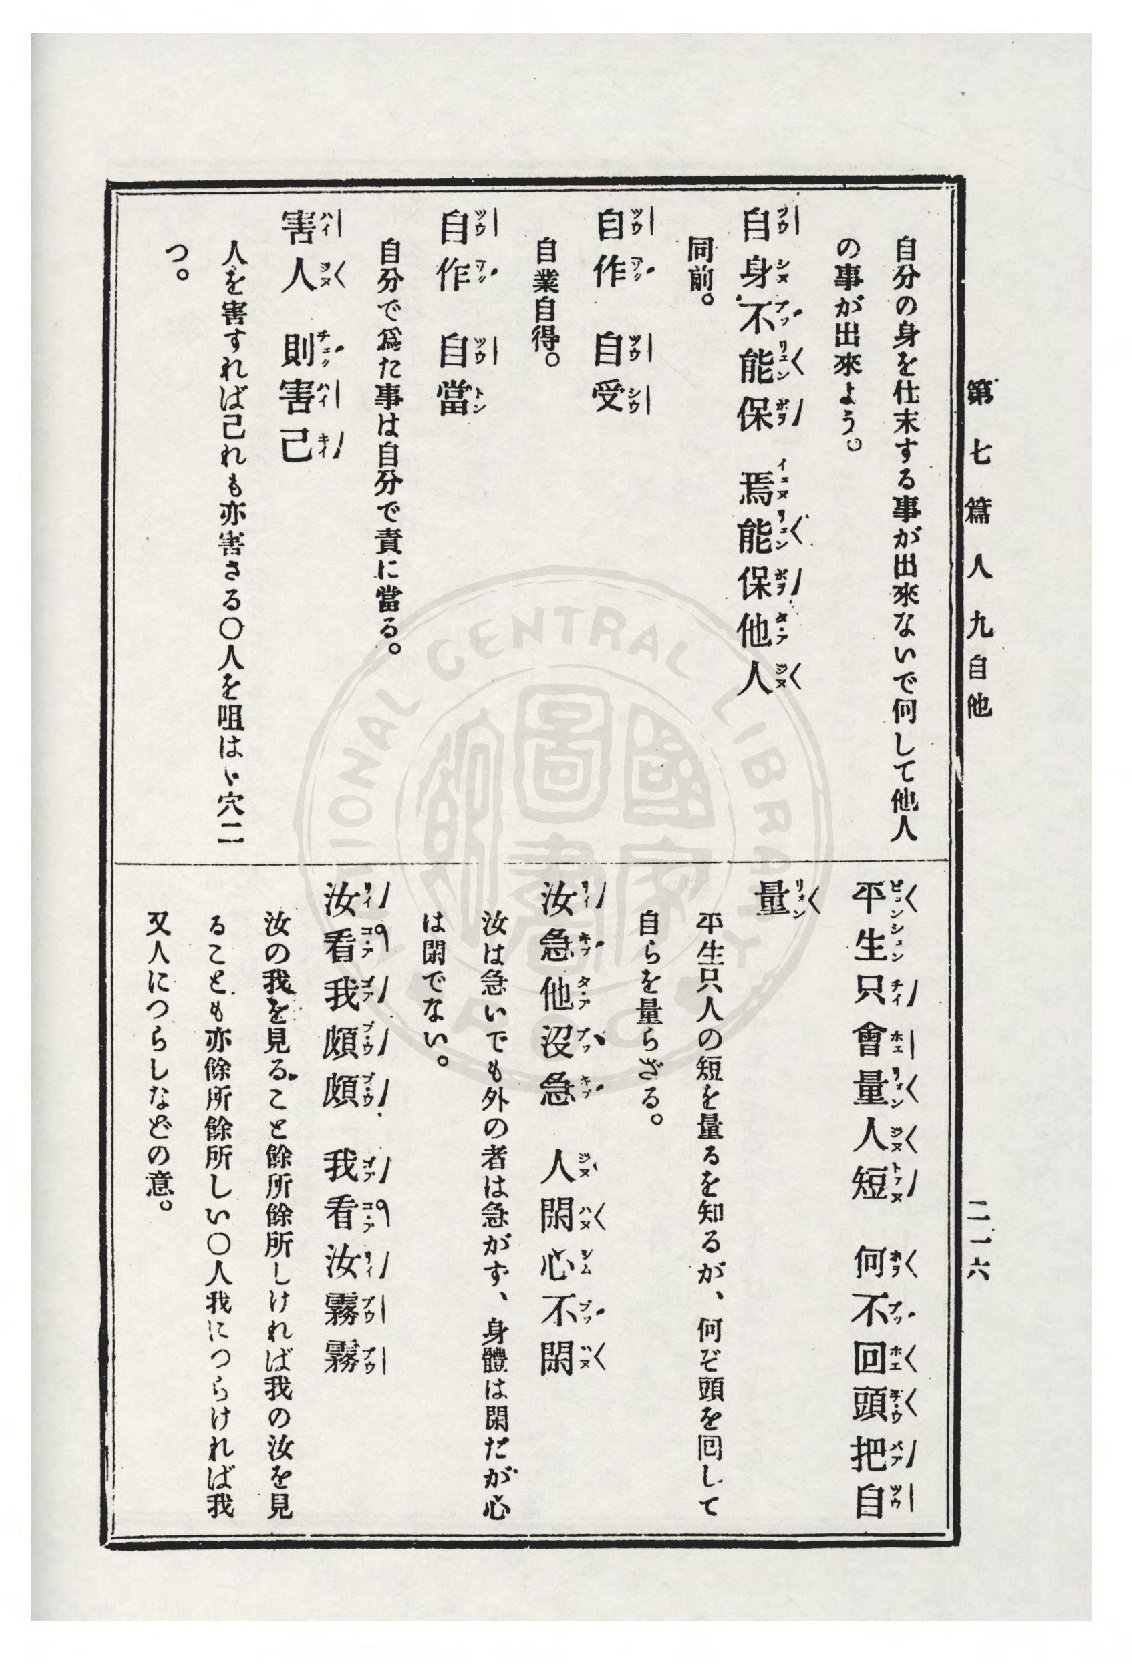 第七篇 人 九 自他
二一六
自分の身を仕末する事が出來ないで何して他人
の事が出來よう。
自身不能保 焉能保他人
同前。
自作 自受
自業自得。
自作 自當
自分で爲た事は自分で責に當る。
害人 則害己
人を害すれば己れも亦害さる〇人を咀はゞ穴二
つ。
平生只會量人短 何不回頭把自
量
平生只人の短を量るを知るが、何ぞ頭を回して
自らを量らざる。
汝急他沒急 人閑心不閑
汝は急いでも外の者は急がず、身體は閑だが心
は閑でない。
汝看我頗頗 我看汝霧霧
汝の我を見ること餘所餘所しければ我の汝を見
ることも亦餘所餘所しい〇人我につらければ我
又人につらしなどの意。
NATIONAL CENTRAL LIBRARY
國家圖書館